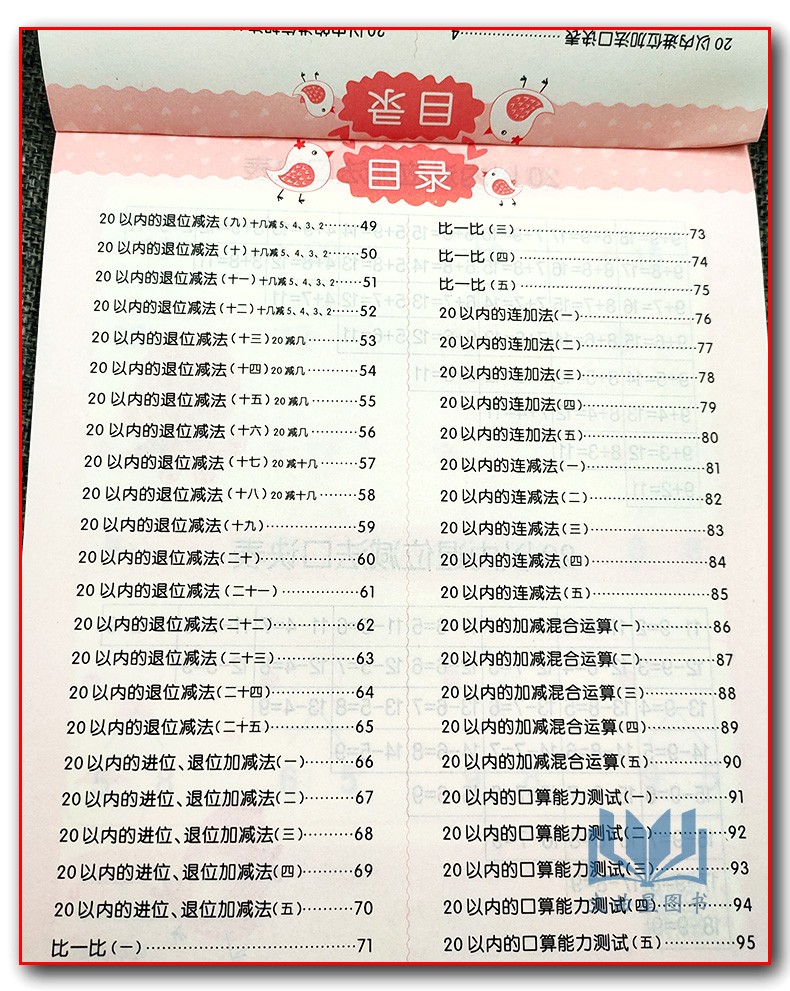 20以内进位加法口诀表……4
目录
目录
20以内的退位减法(九)十几减5、4、3、2……49
20以内的退位减法(十)十几减5、4、3、2……50
20以内的退位减法(十一)十几减5、4、3、2……51
20以内的退位减法(十二)十几减5、4、3、2……52
20以内的退位减法(十三)20减几……53
20以内的退位减法(十四)20减几……54
20以内的退位减法(十五)20减几……55
20以内的退位减法(十六)20减几……56
20以内的退位减法(十七)20减十几……57
20以内的退位减法(十八)20减十几……58
20以内的退位减法(十九)……59
20以内的退位减法(二十)……60
20以内的退位减法(二十一)……61
20以内的退位减法(二十二)……62
20以内的退位减法(二十三)……63
20以内的退位减法(二十四)……64
20以内的退位减法(二十五)……65
20以内的进位、退位加减法(一)……66
20以内的进位、退位加减法(二)……67
20以内的进位、退位加减法(三)……68
20以内的进位、退位加减法(四)……69
20以内的进位、退位加减法(五)……70
比一比(一)……71
比一比(三)……73
比一比(四)……74
比一比(五)……75
20以内的连加法(一)……76
20以内的连加法(二)……77
20以内的连加法(三)……78
20以内的连加法(四)……79
20以内的连加法(五)……80
20以内的连减法(一)……81
20以内的连减法(二)……82
20以内的连减法(三)……83
20以内的连减法(四)……84
20以内的连减法(五)……85
20以内的加减混合运算(一)……86
20以内的加减混合运算(二)……87
20以内的加减混合运算(三)……88
20以内的加减混合运算(四)……89
20以内的加减混合运算(五)……90
20以内的口算能力测试(一)……91
20以内的口算能力测试(二)……92
20以内的口算能力测试(三)……93
20以内的口算能力测试(四)……94
20以内的口算能力测试(五)……95
图书